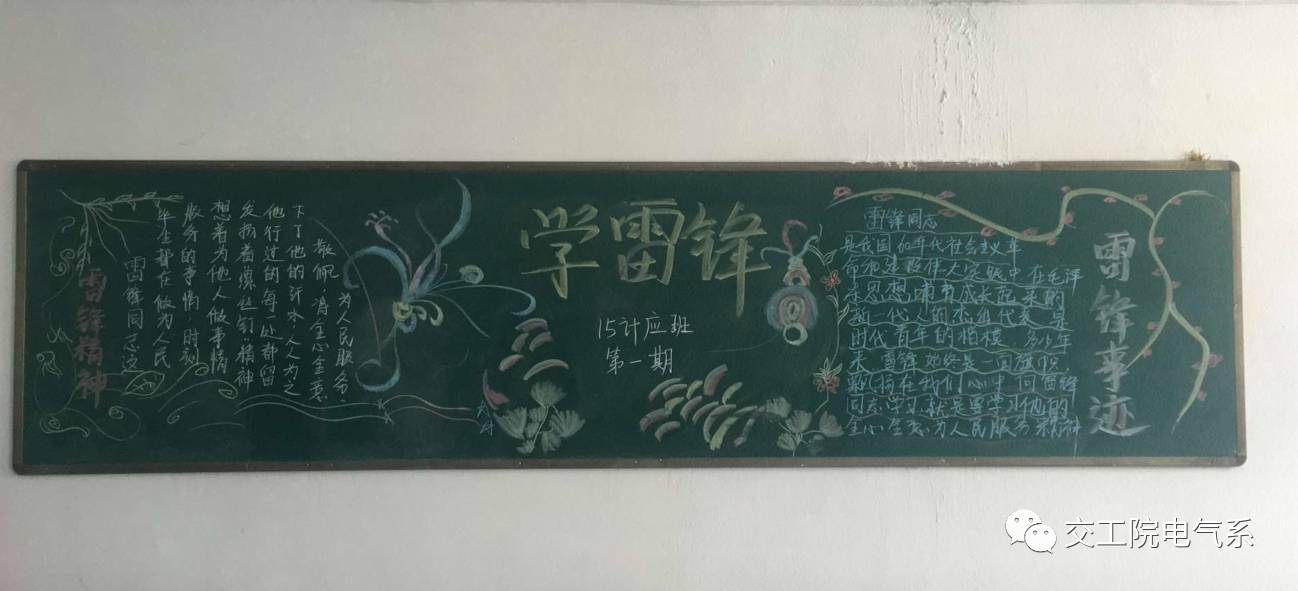 雷锋精神
雷锋同志这
毕生都在做为人民
服务的事情,时刻
想着为他人做事情
发扬着螺丝钉精神
他行过的每一处都留
下了他的汗水,人人为之
敬佩,全心全意
为人民服务
学雷锋
15计应班
第一期
雷锋同志
是我国年代社会主义革
命和建设伟大实践中,在毛泽
东思想哺育成长起来的
新一代人的杰出代表,是
时代青年的楷模,多少年
来,雷锋始终是一面旗帜,
在我们心中,向雷锋
同志学习就是要学习他的
全心全意为人民服务精神
雷锋事迹
交工院电气系